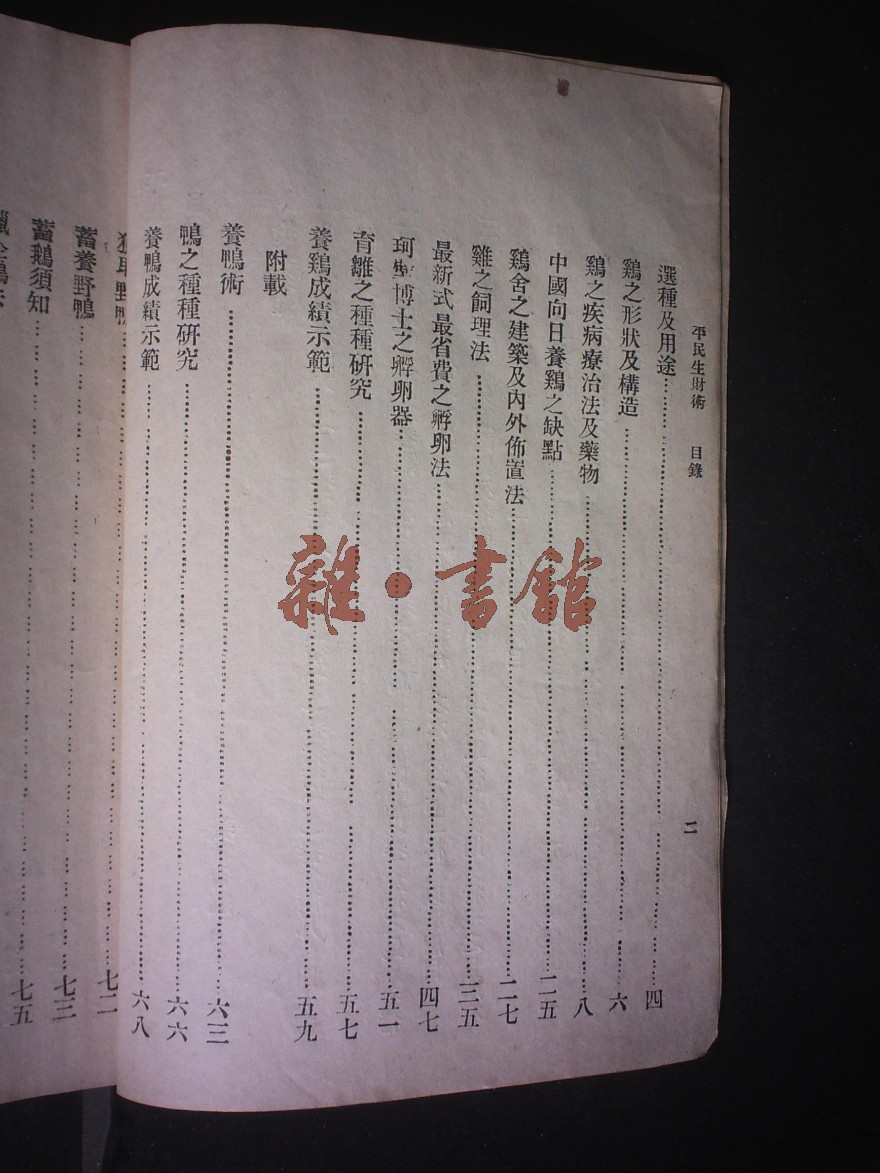 平民生財術 目錄 二
選種及用途 四
鷄之形狀及構造 六
鷄之疾病療治法及藥物 八
中國向日養鷄之缺點 二五
鷄舍之建築及內外佈置法 二七
雞之飼理法 三五
最新式最省費之孵卵法 四七
博士之孵卵器 五一
育雛之種種研究 五七
養鷄成績示範 五九
附載
養鴨術 六三
鴨之種種研究 六六
養鴨成績示範 六八
野鴨 七二
蓄養野鴨 七三
蓄鵝須知 七五
雜·書館